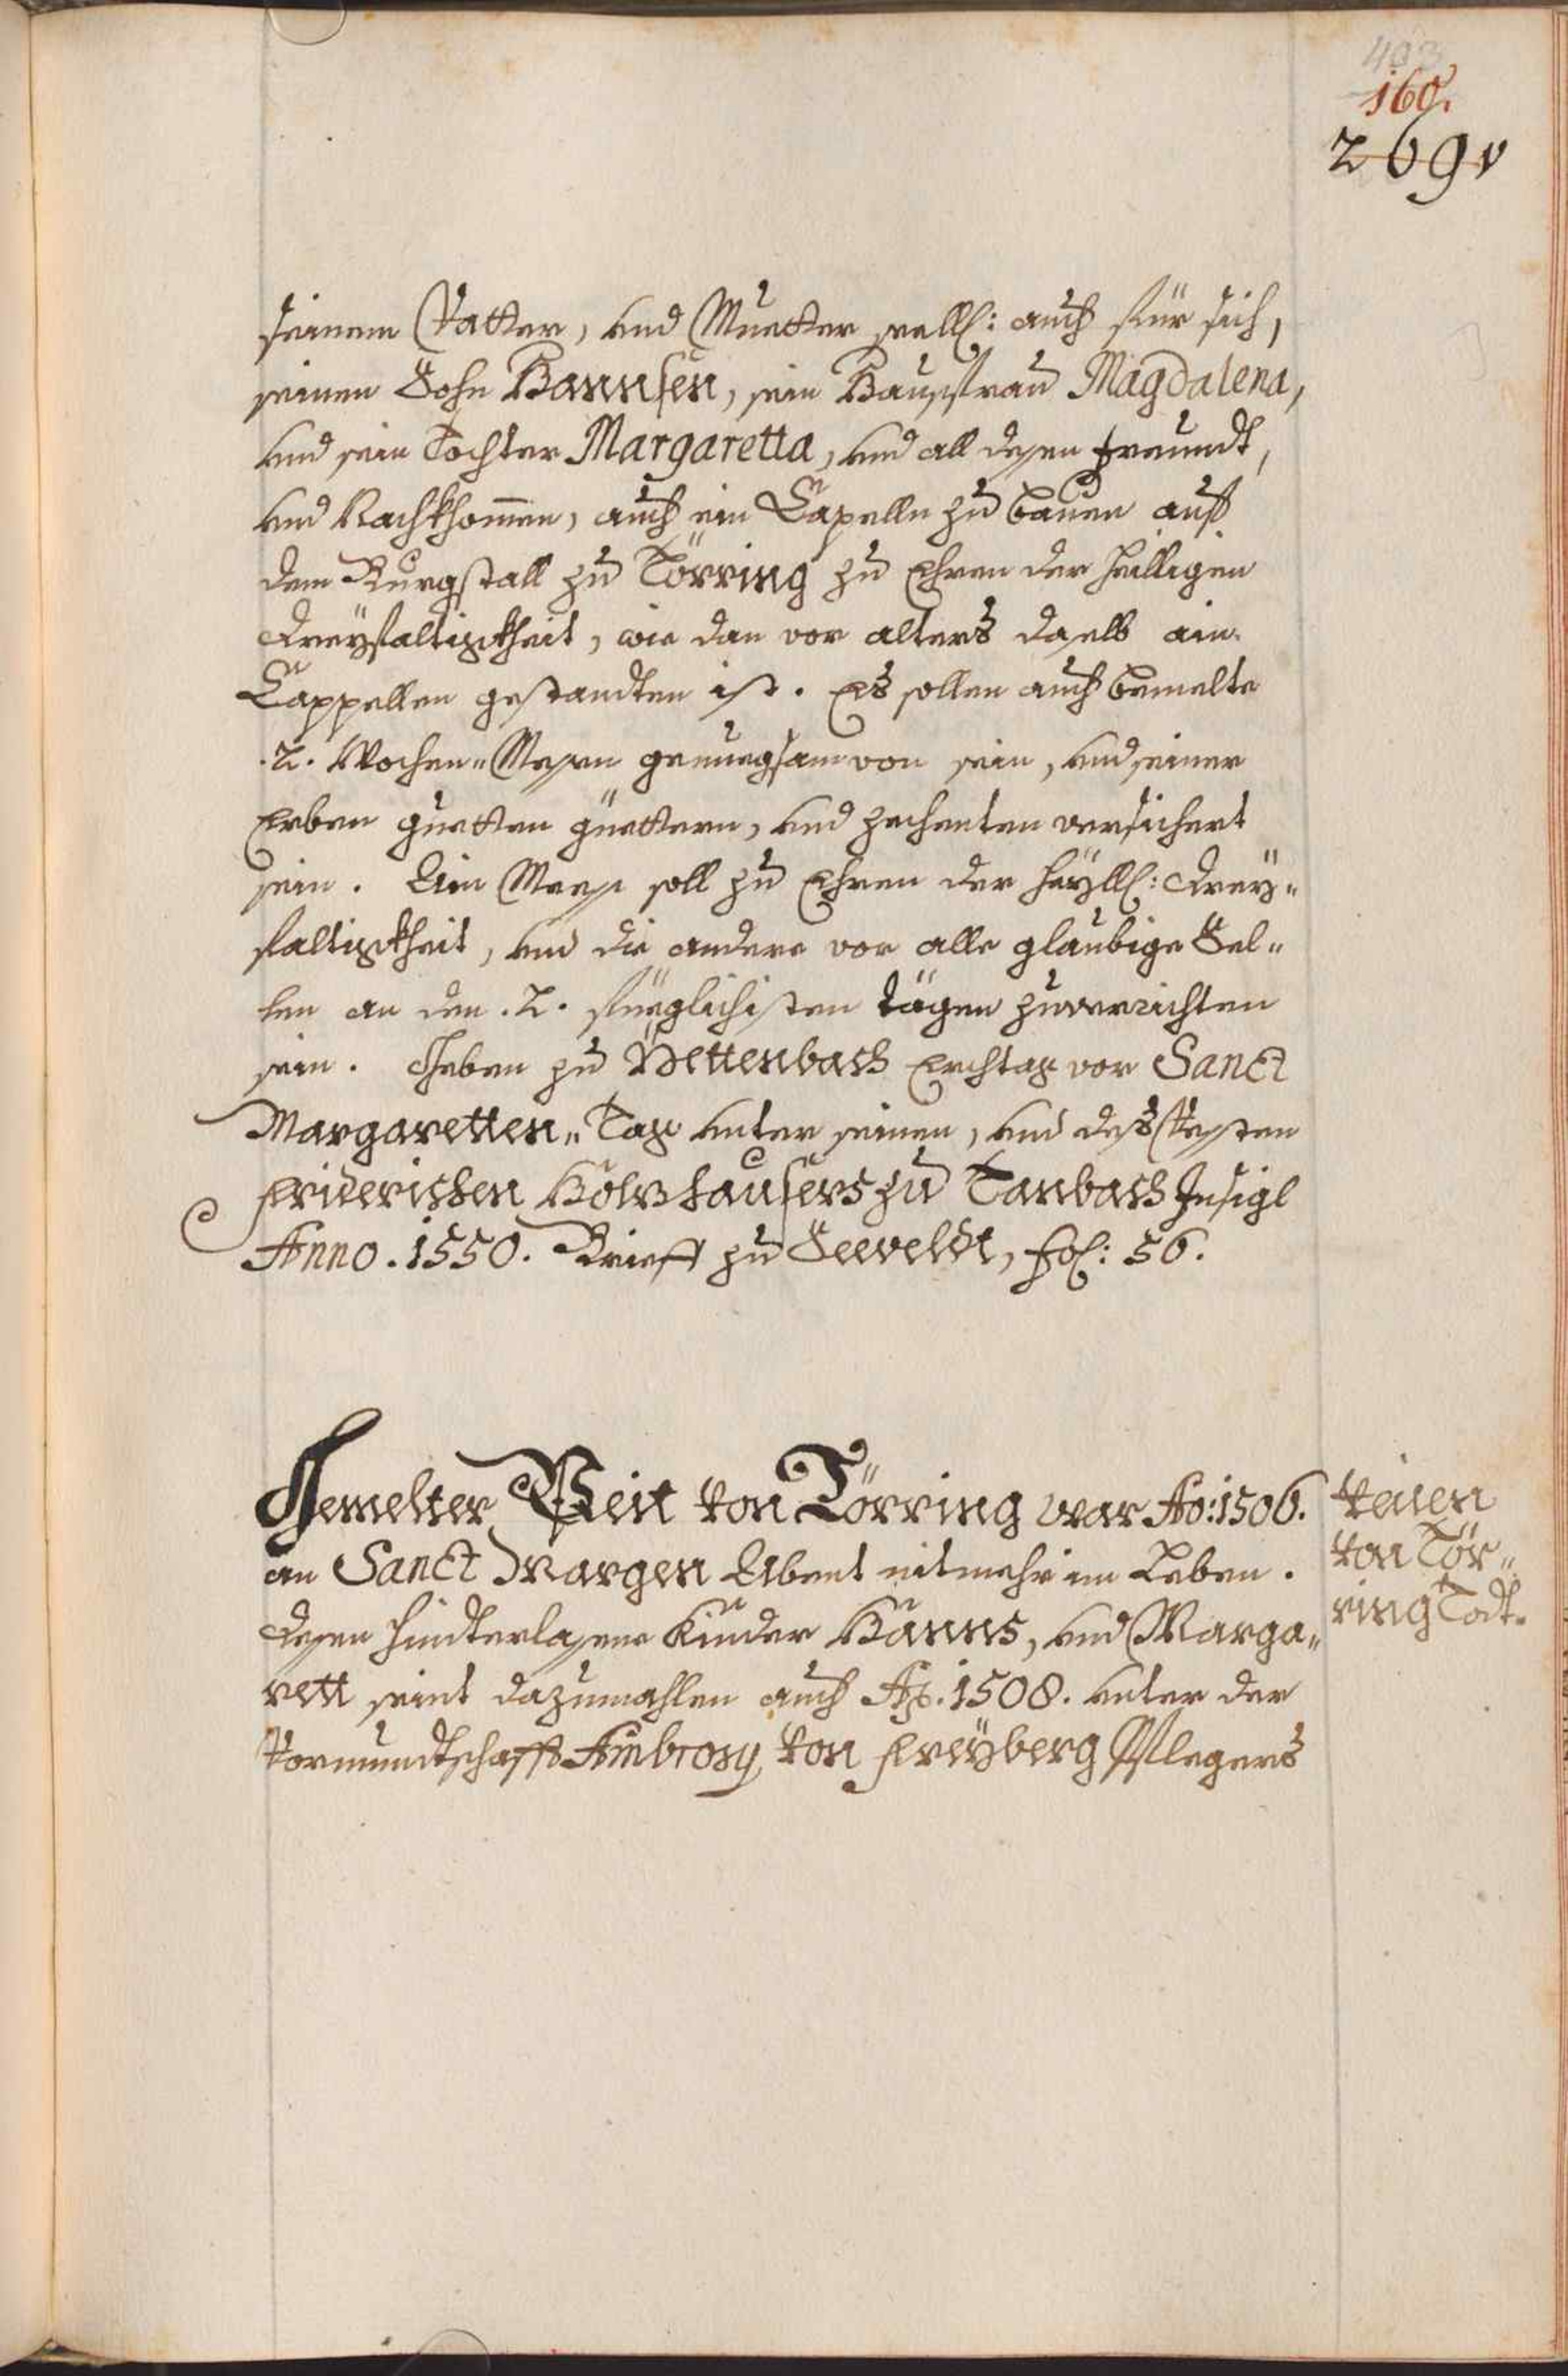 403
160.
269v
seinem Vatter, und Muetter seell: auch für sich,
seinen Sohn Hannsen, sein Haussfrau Magdalena,
und sein Tochter Margaretta, und all desen freundt,
und Nachkhommen, auch ein Capelln zu bauen auf
dem Burgstall zu Törring zu Ehren der heilligen
Dreyfaltigkheit, wie dan vor alters daselb ain
Cappellen gestandten ist. Es sollen auch bemelte
.2. Wochen-Messen genuegsam von sein, und seiner
Erben guetten güettern, und zechenten versichert
sein. Ain Mess soll zu Ehren der heyll: Drey-
faltigkheit, und die andere vor alle glaubige See-
len an den .2. füeglichisten tägen zuverrichten
sein. Geben zu Pettenbach Erchtag vor Sanct
Margaretten-Tag unter seinen, und des Vesten
Friderichen Hölzhausers zu Tanbach Insigl
Anno. 1550. Brieff zu Seeveldt, fol: 56.
Gemelter Veit von Törring war Ao: 1506.
an Sanct Margen Abent nit mehr im Leben.
desen hinderlasene Kinder Hanns, und Marga-
rett seint dazumahlen auch Ao. 1508. unter der
Vormundtschafft Ambrosy von Freyberg Pflegers
Veiten
von Tör-
ring Todt.